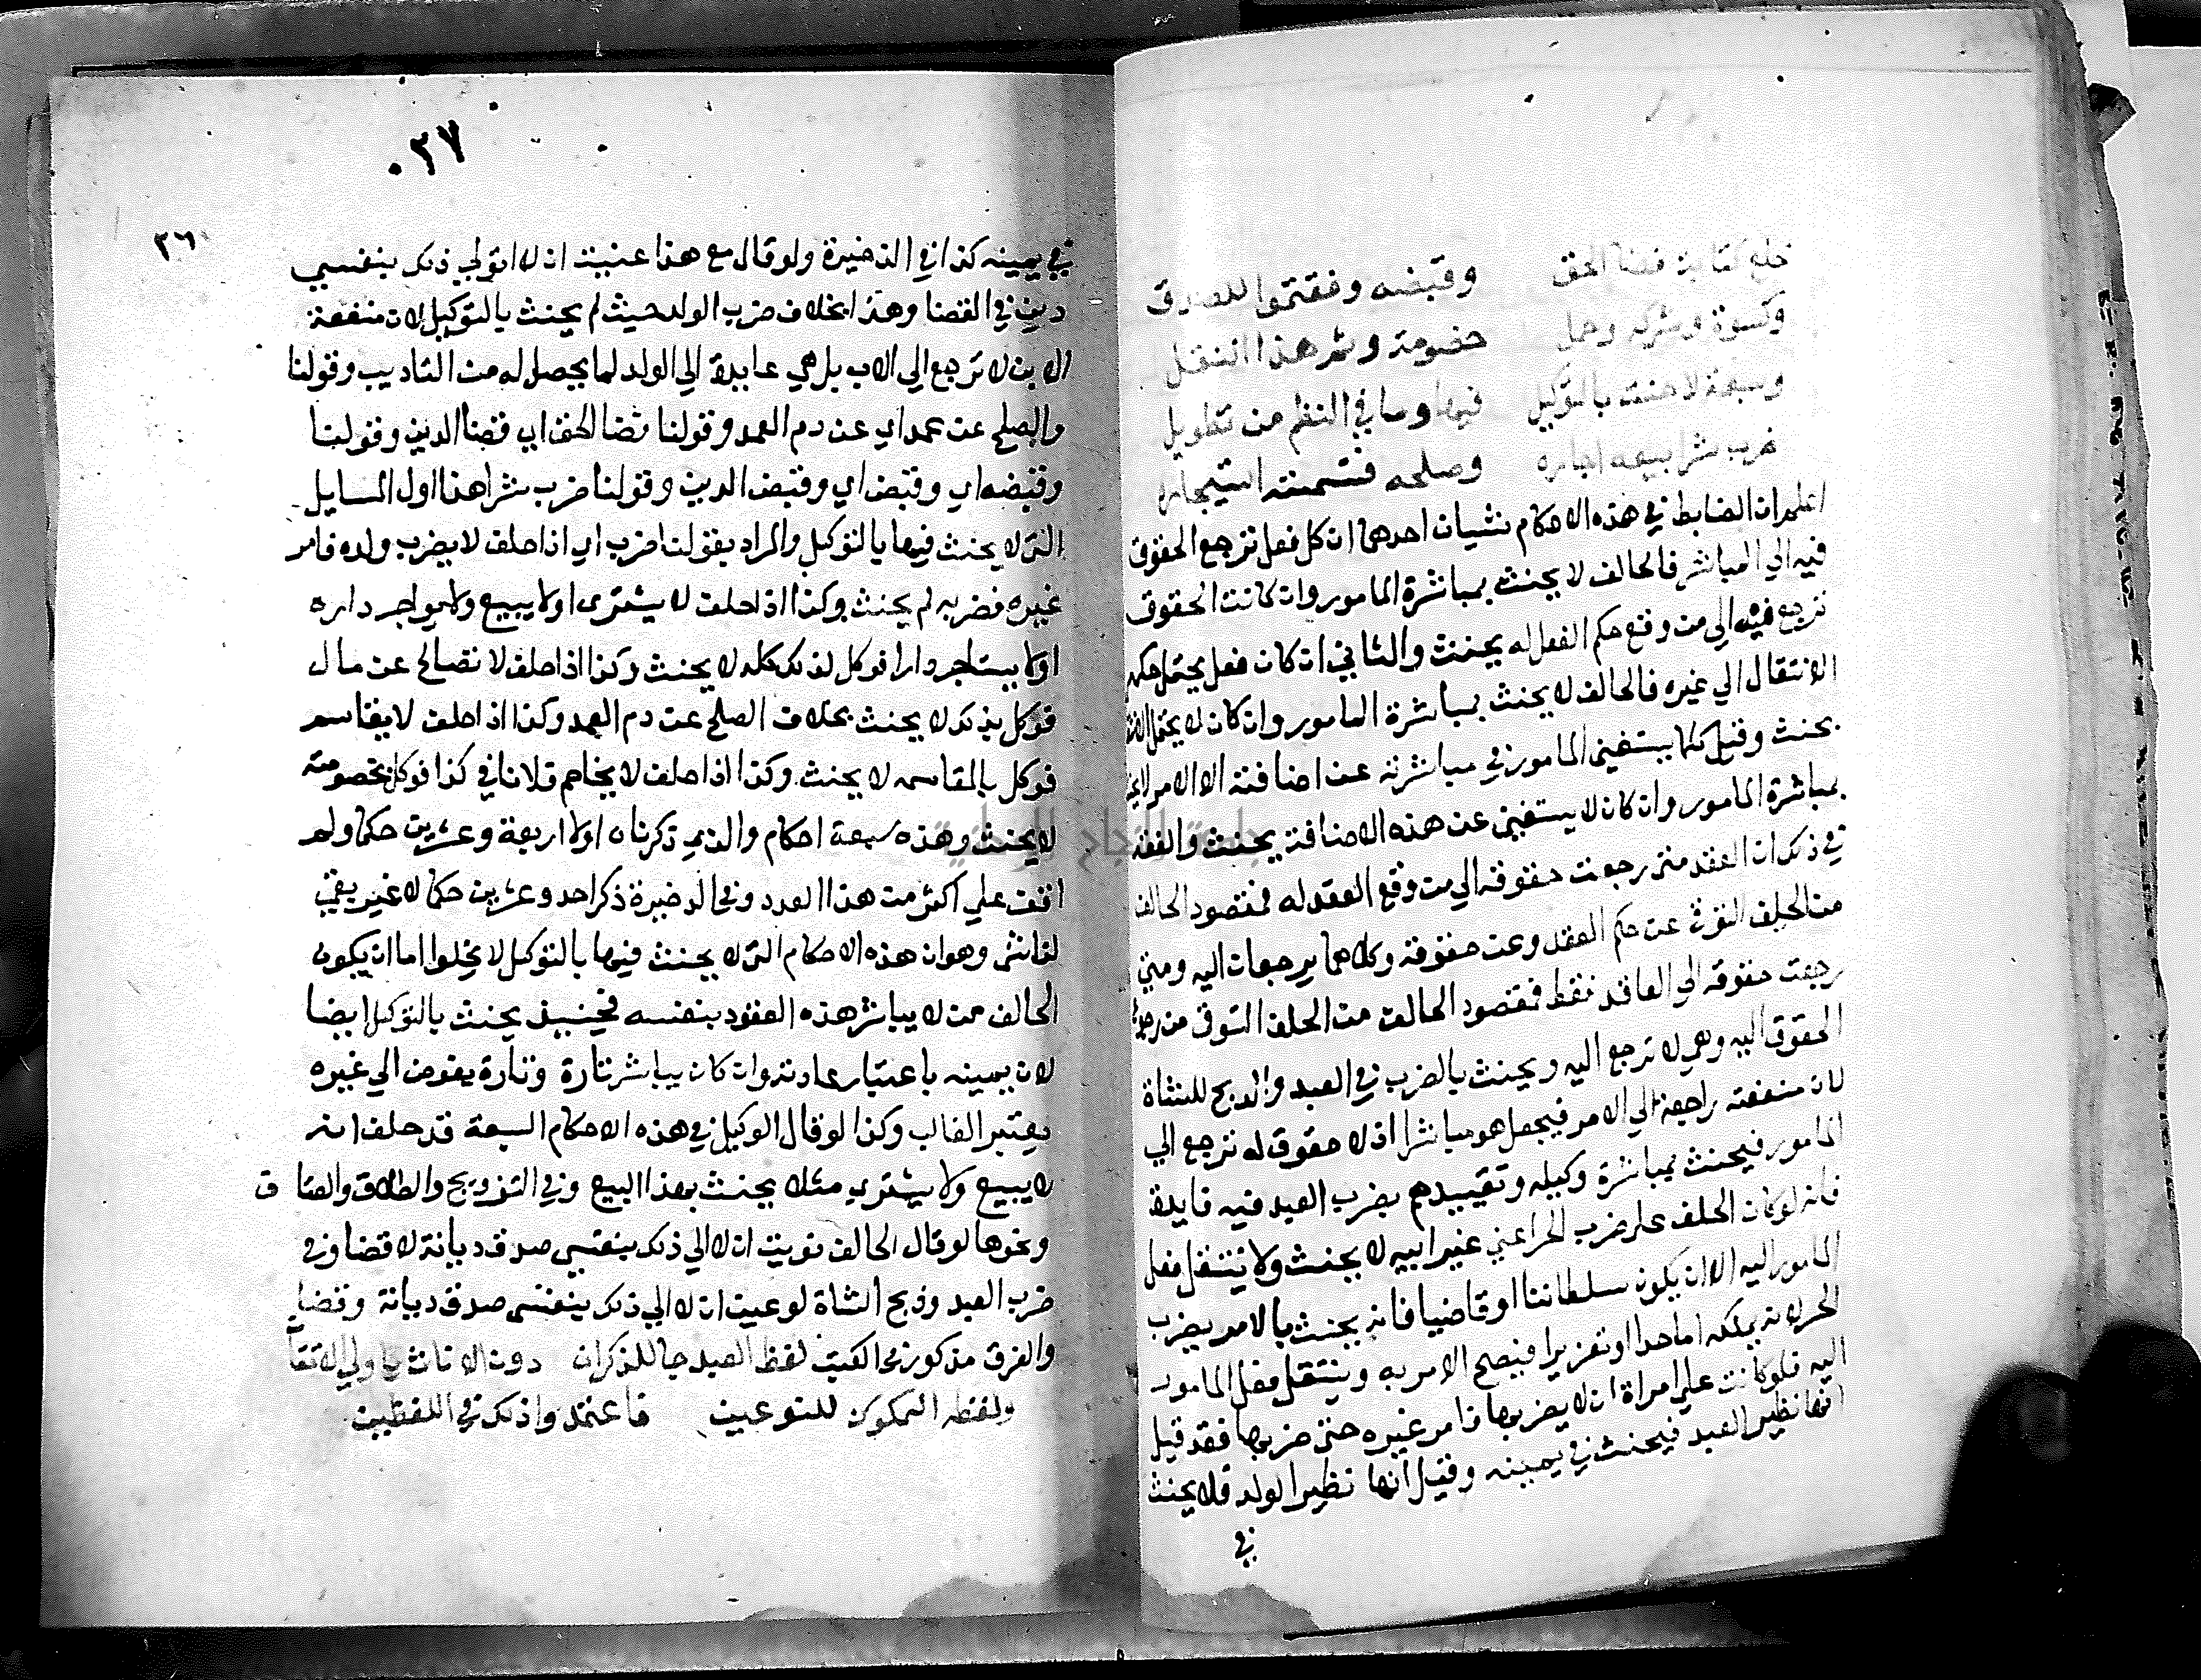 خلع كتابة قضا الحق وقبضه وفقتموا للصدق
وكسوة وشركه وحمل خصومة وثم هذا النقل
وسبعة لا حنث بالتوكيل فيها وما في النظم من تطويل
ضرب شرا بيعه اجاره وصلحه قسمته استيجاره
اعلم ان الضابط في هذه الاحكام شيان احدهما ان كل فعل ترجع الحقوق
فيه الي المباشر فالحالف لا يحنث بمباشرة المامور وان كانت الحقوق
ترجع فيه الي من وقع حكم الفعل له يحنث والثاني ان كان فعل يحتمل حكمه
الانتقال الي غيره فالحالف لا يحنث بمباشرة المامور وان كان لا يحتمل
يحنث وقيل كلما يستغني المامور في مباشرته عن اضافته الا الامر لا يحنث
بمباشرة المامور وان كان لا يستغني عن هذه الاضافة يحنث والفقه
في ذلك ان العقد متي رجعت حقوقه الي من وقع العقد له فمقصود الحالف
من الحلف التوقي عن حكم العقد وعن حقوقه وكلاهما يرجعان اليه ومتي
رجعت حقوقه الي العاقد فقط فمقصود الحالف من الحلف التوقي من رجوع
الحقوق اليه وهي لا ترجع اليه ويحنث بالضرب في العبد والذبح للشاة
لان منفعته راجعة الي الامر فيجعل هو مباشرا اذ لا حقوق له ترجع الي
المامور فيحنث بمباشرة وكيله وتقييدهم بضرب العبد فيه فايدة
فانه لو كان الحلف علي ضرب الحر اعني غير ابيه لا يحنث ولا ينتقل فعل
المامور اليه الا ان يكون سلطاننا او قاضيا فانه يحنث بالامر بضرب
الحر لانه يملكه اما حدا او تعزيرا فيصح الامر به وينتقل فعل المامور
اليه فلو كانت علي امراة ان لا يضربها فامر غيره حتي ضربها فقد قيل
انها نظير العبد فيحنث في يمينه وقيل انها نظير الولد فلا يحنث
في
٠٢٧
٢٦
في يمينه كذا في الذخيرة ولو قال مع هذا عنيت ان لا اتولي ذلك بنفسي
دين في القضا وهذا بخلاف ضرب الولد حيث لم يحنث بالتوكيل لان منفعة
الابن لا ترجع الي الاب بل هي عايدة الي الولد لما يحصل له من التاديب وقولنا
والصلح عن عمد اي عن دم العمد وقولنا قضا الحق اي قضا الدين وقولنا
وقبضه اي وقبض اي وقبض الدين وقولنا ضرب شرا هذا اول المسايل
التي لا يحنث فيها بالتوكيل والمراد بقولنا ضرب اي اذا حلف لا يضرب ولده فامر
غيره فضربه لم يحنث وكذا اذا حلف لا يشتري او لا يبيع ولا يواجر داره
او لا يستاجر دارا فوكل لذلك كله لا يحنث وكذا اذا حلف لا نصالح عن مال
فوكل بذلك لا يحنث بخلاف الصلح عن دم العمد وكذا اذا حلف لا يقاسم
فوكل بالمقاسمه لا يحنث وكذا اذا حلف لا يخاصم فلانا في كذا فوكل بخصومته
لا يحنث وهذه سبعة احكام والذي ذكرناه اولا اربعة وعشرين حكما ولم
اقف علي اكثر من هذا العدد وفي الذخيرة ذكر احد وعشرين حكما لا غير بقي
لنا شي وهو ان هذه الاحكام التي لا يحنث فيها بالتوكيل لا يخلوا اما ان يكون
الحالف ممن لا يباشر هذه العقود بنفسه فحينيذ يحنث بالتوكيل ايضا
لان يمينه باعتبار عادته وان كان يباشر تارة وتارة يفوض الي غيره
يعتبر الغالب وكذا لو قال الوكيل في هذه الاحكام السبعة قد حلف انه
لا يبيع ولا يشتري مثلا يحنث بهذا البيع وفي التزويج والطلاق والعتاق
ونحوها لو قال الحالف نويت ان لا الي ذلك بنفسي صدق ديانة لا قضا وفي
ضرب العبد وذبح الشاة لو عنيت ان لا الي ذلك بنفسي صدق ديانة وقضا
والفرق مذكور في الكتب لفظ العبد جا للذكران دون الاناث
ولفظه المملوك للنوعين فاعتمدوا ذلك في اللفظين